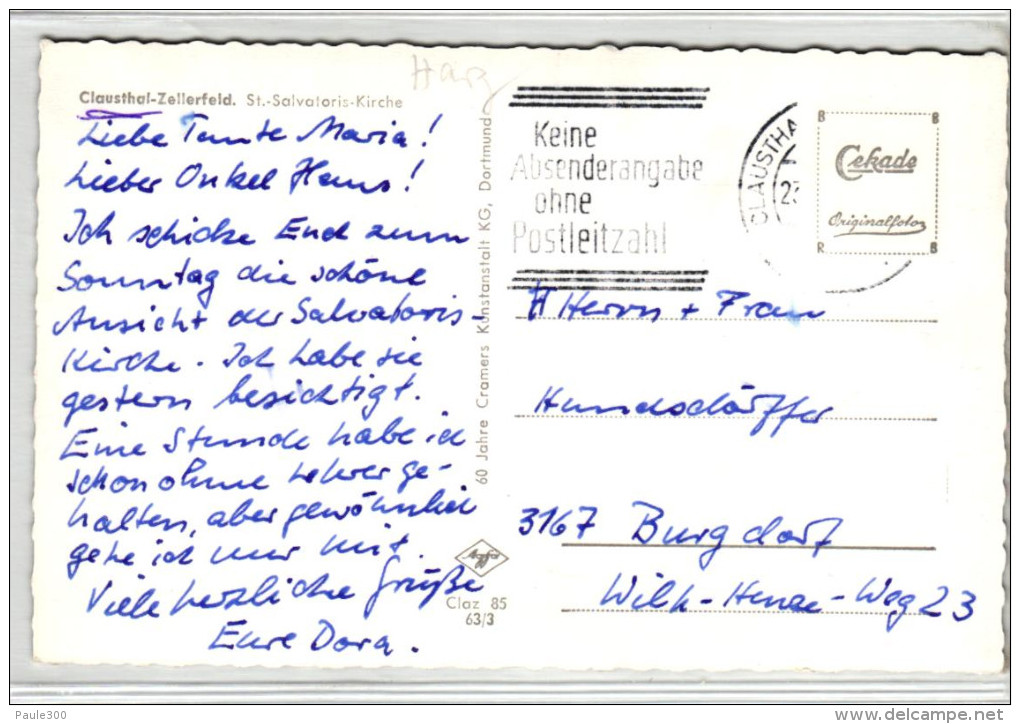 Harz
Clausthal-Zellerfeld. St.-Salvatoris-Kirche
Liebe Tante Maria!
Lieber Onkel Hans!
Ich schicke Euch zum
Sonntag die schöne
Ansicht der Salvatoris-
Kirche. Ich habe sie
gestern besichtigt.
Eine Stunde habe ich
schon ohne Lehrer ge-
halten, aber gewöhnlich
gehe ich nur mit.
Viele herzliche Grüße
Eure Dora.
60 Jahre Cramers Kunstanstalt KG, Dortmund
Agfa
Claz 85
63/3
Keine
Absenderangabe
ohne
Postleitzahl
CLAUSTHA
B B
Cekade
Originalfoto
R B
Herrn + Frau
Hundsdörffer
3167 Burgdorf
Wilh-Henze-Weg 23
Paule300